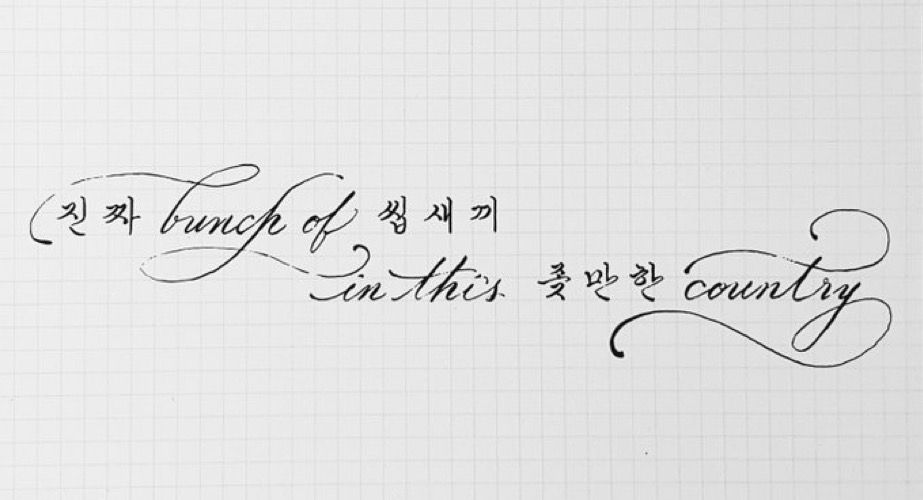 진짜 bunch of 씹새끼
in this 좆만한 country